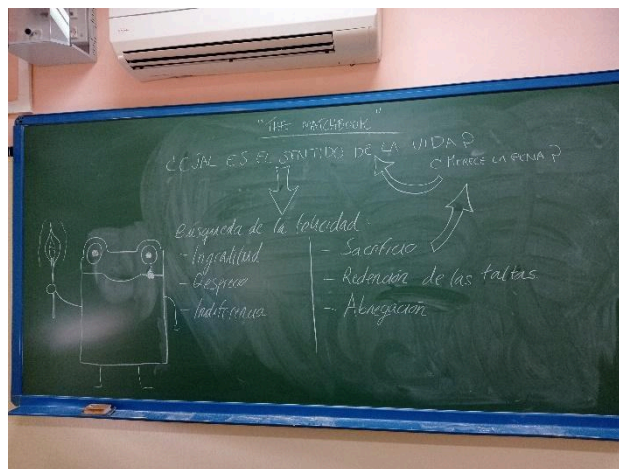 "THE MATCHBOOK"
¿CUAL ES EL SENTIDO DE LA VIDA?
¿MERECE LA PENA?
Búsqueda de la felicidad.
- Ingratitud
- Desprecio
- Indiferencia
- Sacrificio
- Redención de las faltas
- Abnegación